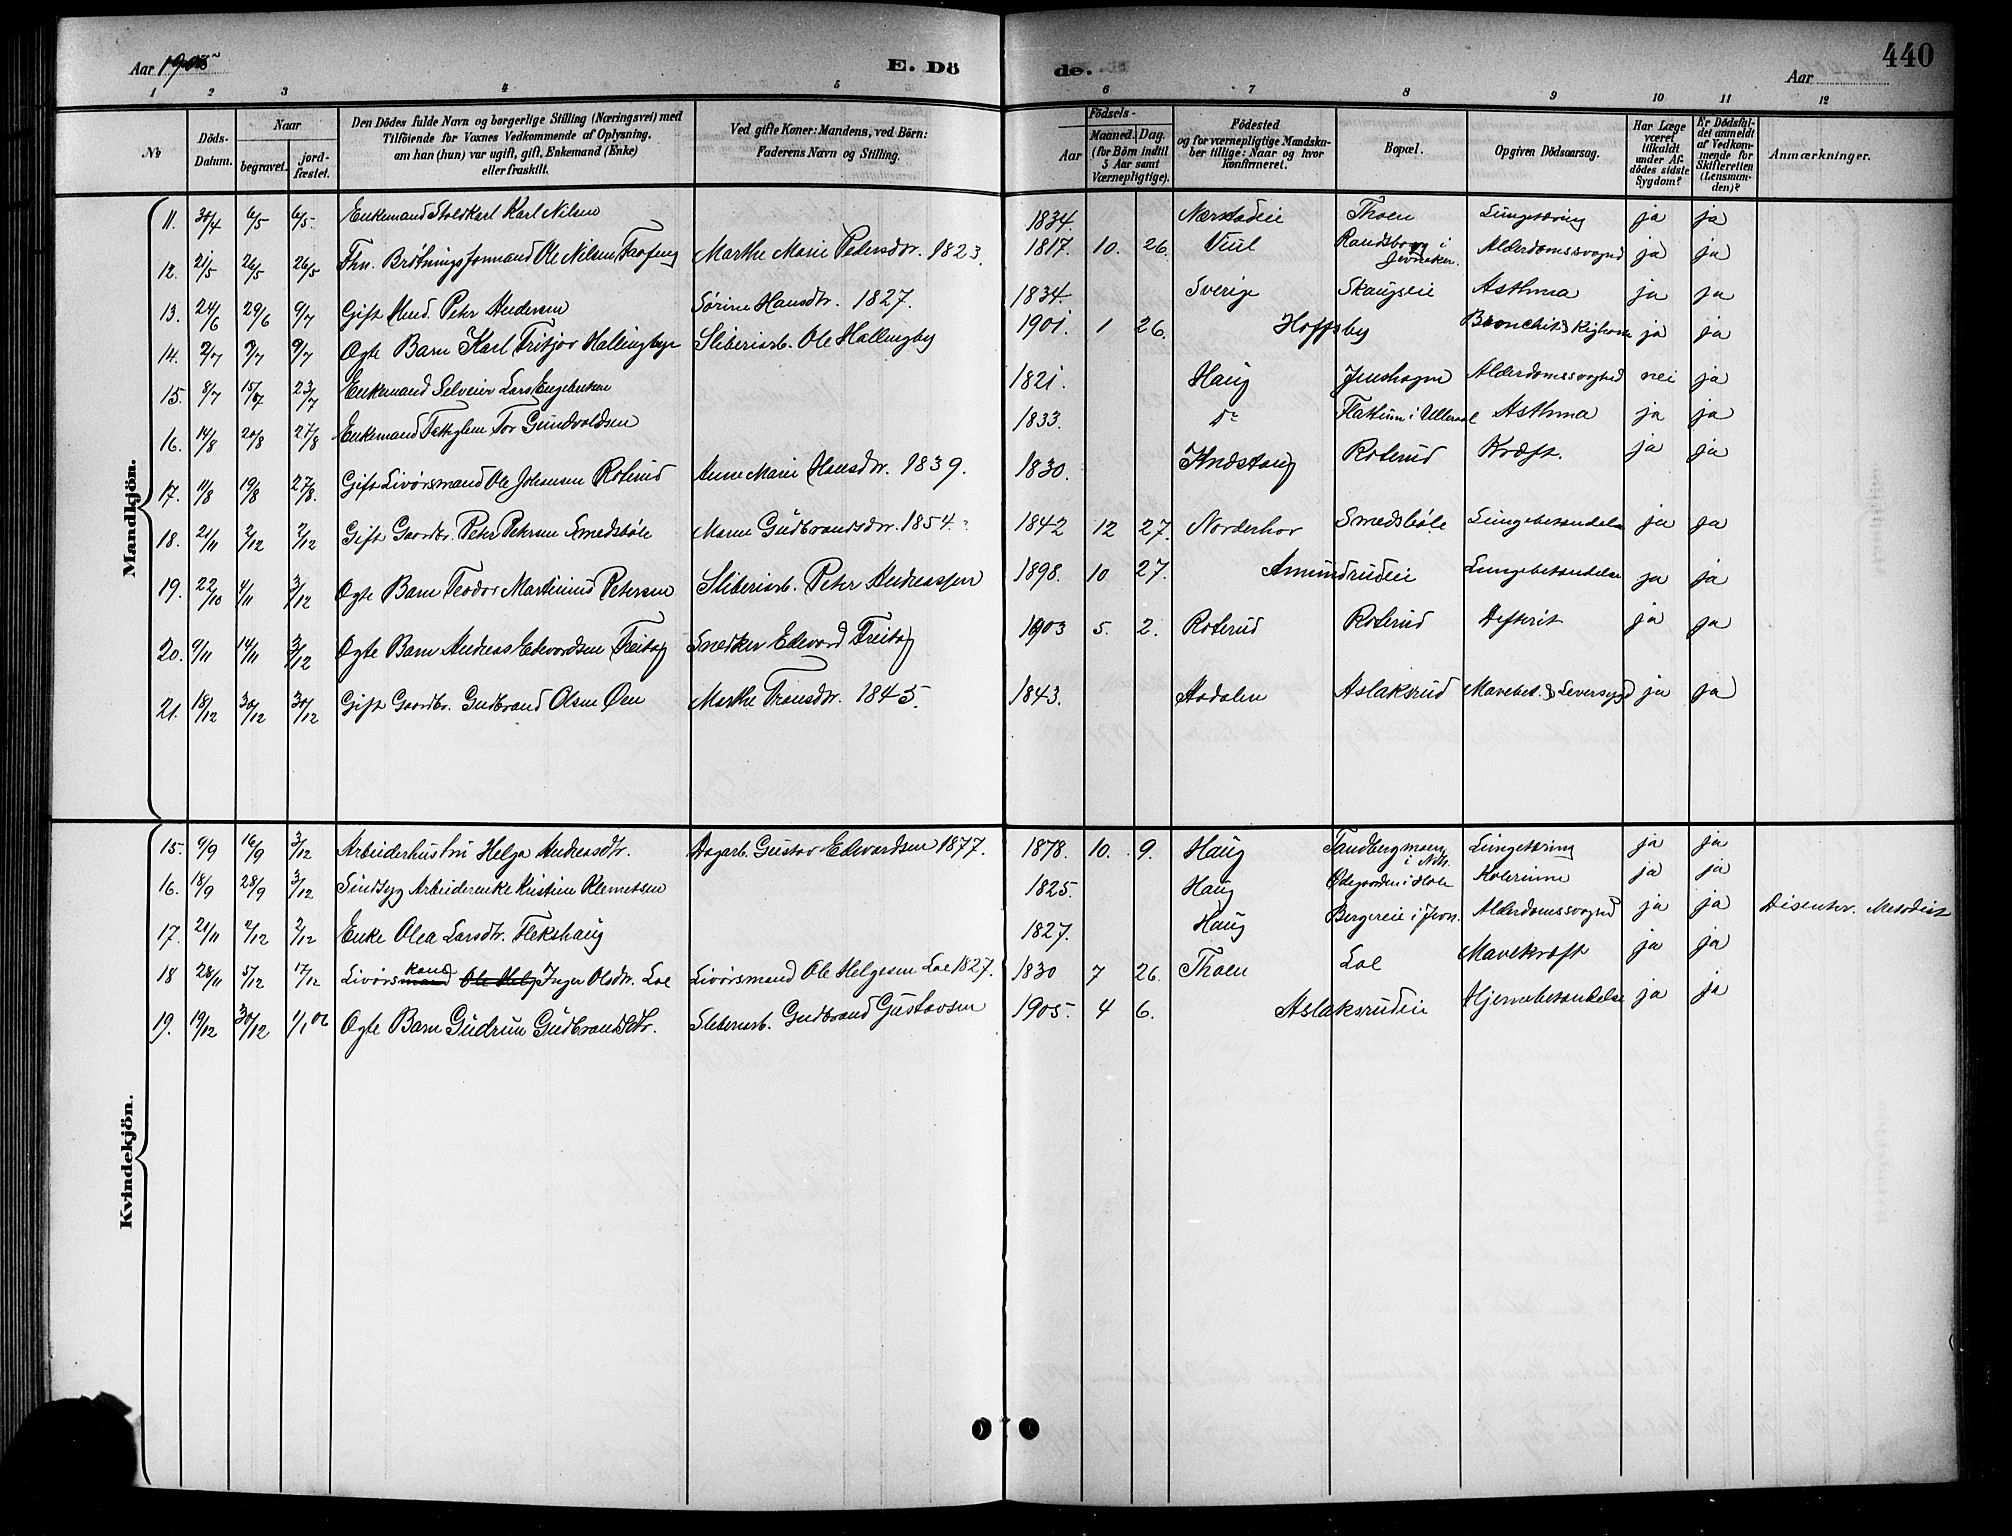 Aar 1905
E. Döde.
Aar
440
1 2 3 4 5 6 7 8 9 10 11 12
№
Döds-Datum.
Naar begravet. jordfæstet.
Den Dödes fulde Navn og borgerlige Stilling (Næringsvei) med Tilföiende for Voxnes Vedkommende af Oplysning, om han (hun) var ugift, gift, Enkemand (Enke) eller fraskilt.
Ved gifte Koner: Mandens, ved Börn: Faderens Navn og Stilling.
Födsels-
Aar
Maaned. Dag. (for Börn indtil 5 Aar samt Værnepligtige).
Födested og for værnepligtige Mandskaber tillige: Naar og hvor konfirmeret.
Bopæl.
Opgiven Dödsaarsag.
Har Læge været tilkaldt under Afdödes sidste Sygdom?
Er Dödsfaldet anmeldt af Vedkommende for Skifteretten (Lensmanden)?
Anmærkninger.
Mandkjön.
11. 30/4 6/5 6/5. Enkemand Staldkarl Karl Nilsen 1834. Thoen Lungetæring ja ja
12. 21/5 26/5 26/5 Fhv. Brøtningsformand Ole Nilsen Marthe Marie Petersdtr. 1823. 1817. 10. 26. Viul Randsborg i Jevnaker. Alderdomssvaghed ja ja
13. 24/6 29/6 9/7 Gift Petr Andersen Sørine Hansdtr. 1827. 1834. Sverige Skaugseie Asthma ja ja
14. 2/7 9/7 9/7 Ægte Barn Karl Fritjov Hallingbye Sliberiarb. Ole Hallingby 1901. 1 26. Hoffsby Bronchit & Kighoste ja ja
15. 8/7 15/7 23/7 Enkemand Selveier Lars Engebretsen 1821. Haug Jenshagen Alderdomssvaghed nei ja
16. 14/8 20/8 27/8 Enkemand Tor Gundvoldsen 1833. do Flaktum i Ulleraal Asthma ja ja
17. 11/8 19/8 27/8. Gift Livørsmand Ole Johansen Roterud Anne Marie Hansdtr. 1839. 1830. Roterud Kræft. ja ja
18. 21/11 2/12 2/12 Gift Gaardbr. Petr Petersen Smedsbøle Maren Gudbrandsdtr. 1854. 1842 12 27. Norderhov Smedsbøle Lungebetændelse ja ja
19. 22/10 4/11 3/12 Ægte Barn Teodor Martinius Petersen Sliberiarb. Petr Andreassen 1898. 10 27. Amundrudeie Lungebetændelse ja ja
20. 9/11 14/11 3/12 Ægte Barn Andreas Edvardsen Freitag Snedker Edvard Freitag 1903 5. 2. Roterud Roterud Defterit ja ja
21. 18/12 30/12 30/12 Gift Gaardbr. Gudbrand Olsen Øen Marthe Fransdtr. 1845. 1843. Aadalen Aslaksrud Mavebet. & Leversygd ja ja
Kvindekjön.
15. 9/9 16/9 3/12 Arbeiderhustru Helga Andreasdtr. Dagarb. Gustav Edvardsen 1877. 1878. 10. 9. Haug Tandbergmoen i Ndh. Lungetæring ja ja
16. 18/9 28/9 3/12 Sindssyg Arbeiderenke Kristine Klemetsen 1825. Haug Ødegaarden i Hole Kolerinne ja ja
17. 21/11 2/12 2/12 Enke Olea Larsdtr. Flekshaug 1827. Haug Bergereie i Jevn. Alderdomssvaghed ja ja Disenter. Metodist
18 28/11 5/12 17/12 Livørskone Inger Olsdtr. Loe Livørsmand Ole Helgesen Loe 1827. 1830 7 26. Thoen Loe Mavekræft ja ja
19. 19/12 30/12 1/1 06 Ægte Barn Gudrun Gudbrandsdtr. Sliberiarb. Gudbrand Gustavsen 1905. 4 6. Aslaksrudeie Hjernebetændelse ja ja